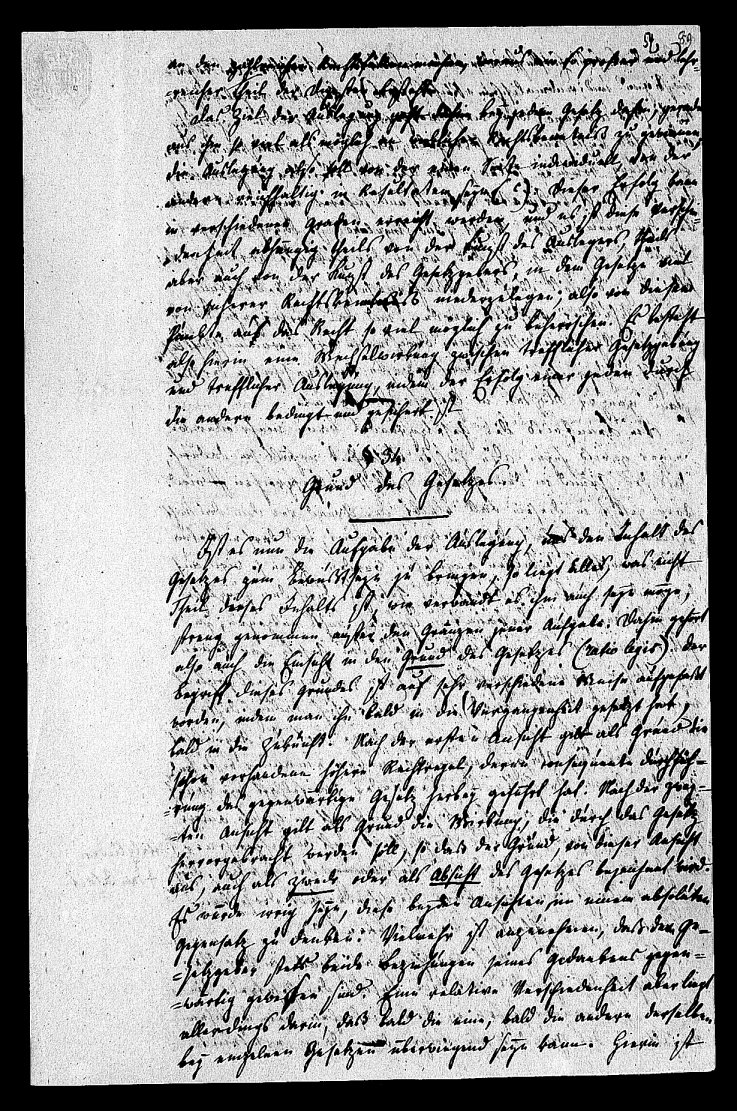 39
an den zahlreichen Bruchstücken machen, woraus ein so großer und lehr-
-reicher Theil der Digesten besteht.
Das Ziel der Auslegung geht bey jedem Gesetz dahin, gerade
aus ihm so viel als möglich an wirklicher Rechtskenntniß zu gewinnen;
die Auslegung also soll von der einen Seite individuell, von der
andern reichhaltig in Resultaten seyn (c). Dieser Erfolg kann
in verschiedenen Graden erreicht werden, und es ist diese Verschie-
-denheit abhängig theils von der Kunst des Auslegers, theils
aber auch von der Kunst des Gesetzgebers, in dem Gesetze viel
von sicherer Rechtskenntniß niederzulegen, also von diesem
Punkte aus das Recht so viel möglich zu beherrschen. Es besteht
also hierin eine Wechselwirkung zwischen trefflicher Gesetzgebung
und trefflicher Auslegung, indem der Erfolg einer jeden durch
die andere bedingt und gesichert ist
§ 34.
Grund des Gesetzes
Ist es nun die Aufgabe der Auslegung, uns den Inhalt des
Gesetzes zum Bewußtseyn zu bringen, so liegt Alles, was nicht
Theil dieses Inhalts ist, wie verwandt es ihm auch seyn möge,
streng genommen außer den Gränzen jener Aufgabe. Dahin gehört
also auch die Einsicht in den Grund des Gesetzes (ratio legis). Der
Begriff dieses Grundes ist auf sehr verschiedene Weise aufgefaßt
worden, indem man ihn bald in die Vergangenheit gesetzt hat,
bald in die Zukunft. Nach der ersten Ansicht gilt als Grund die
schon vorhandene höhere Rechtsregel, deren consequente Durchfüh-
-rung das gegenwärtige Gesetz herbey geführt hat. Nach der zwey-
-ten Ansicht gilt als Grund die Wirkung, die durch das Gesetz
hervorgebracht werden soll, so daß der Grund, von dieser Ansicht
aus, auch als Zweck oder als Absicht des Gesetzes bezeichnet wird.
Es würde irrig seyn, diese beyden Ansichten in einem absoluten
Gegensatz zu denken. Vielmehr ist anzunehmen, daß dem Ge-
-setzgeber stets beide Beziehungen seines Gedankens gegen-
-wärtig gewesen sind. Eine relative Verschiedenheit aber liegt
allerdings darin, daß bald die eine, bald die andere derselben
bey einzelnen Gesetzen überwiegend seyn kann. Hierin ist